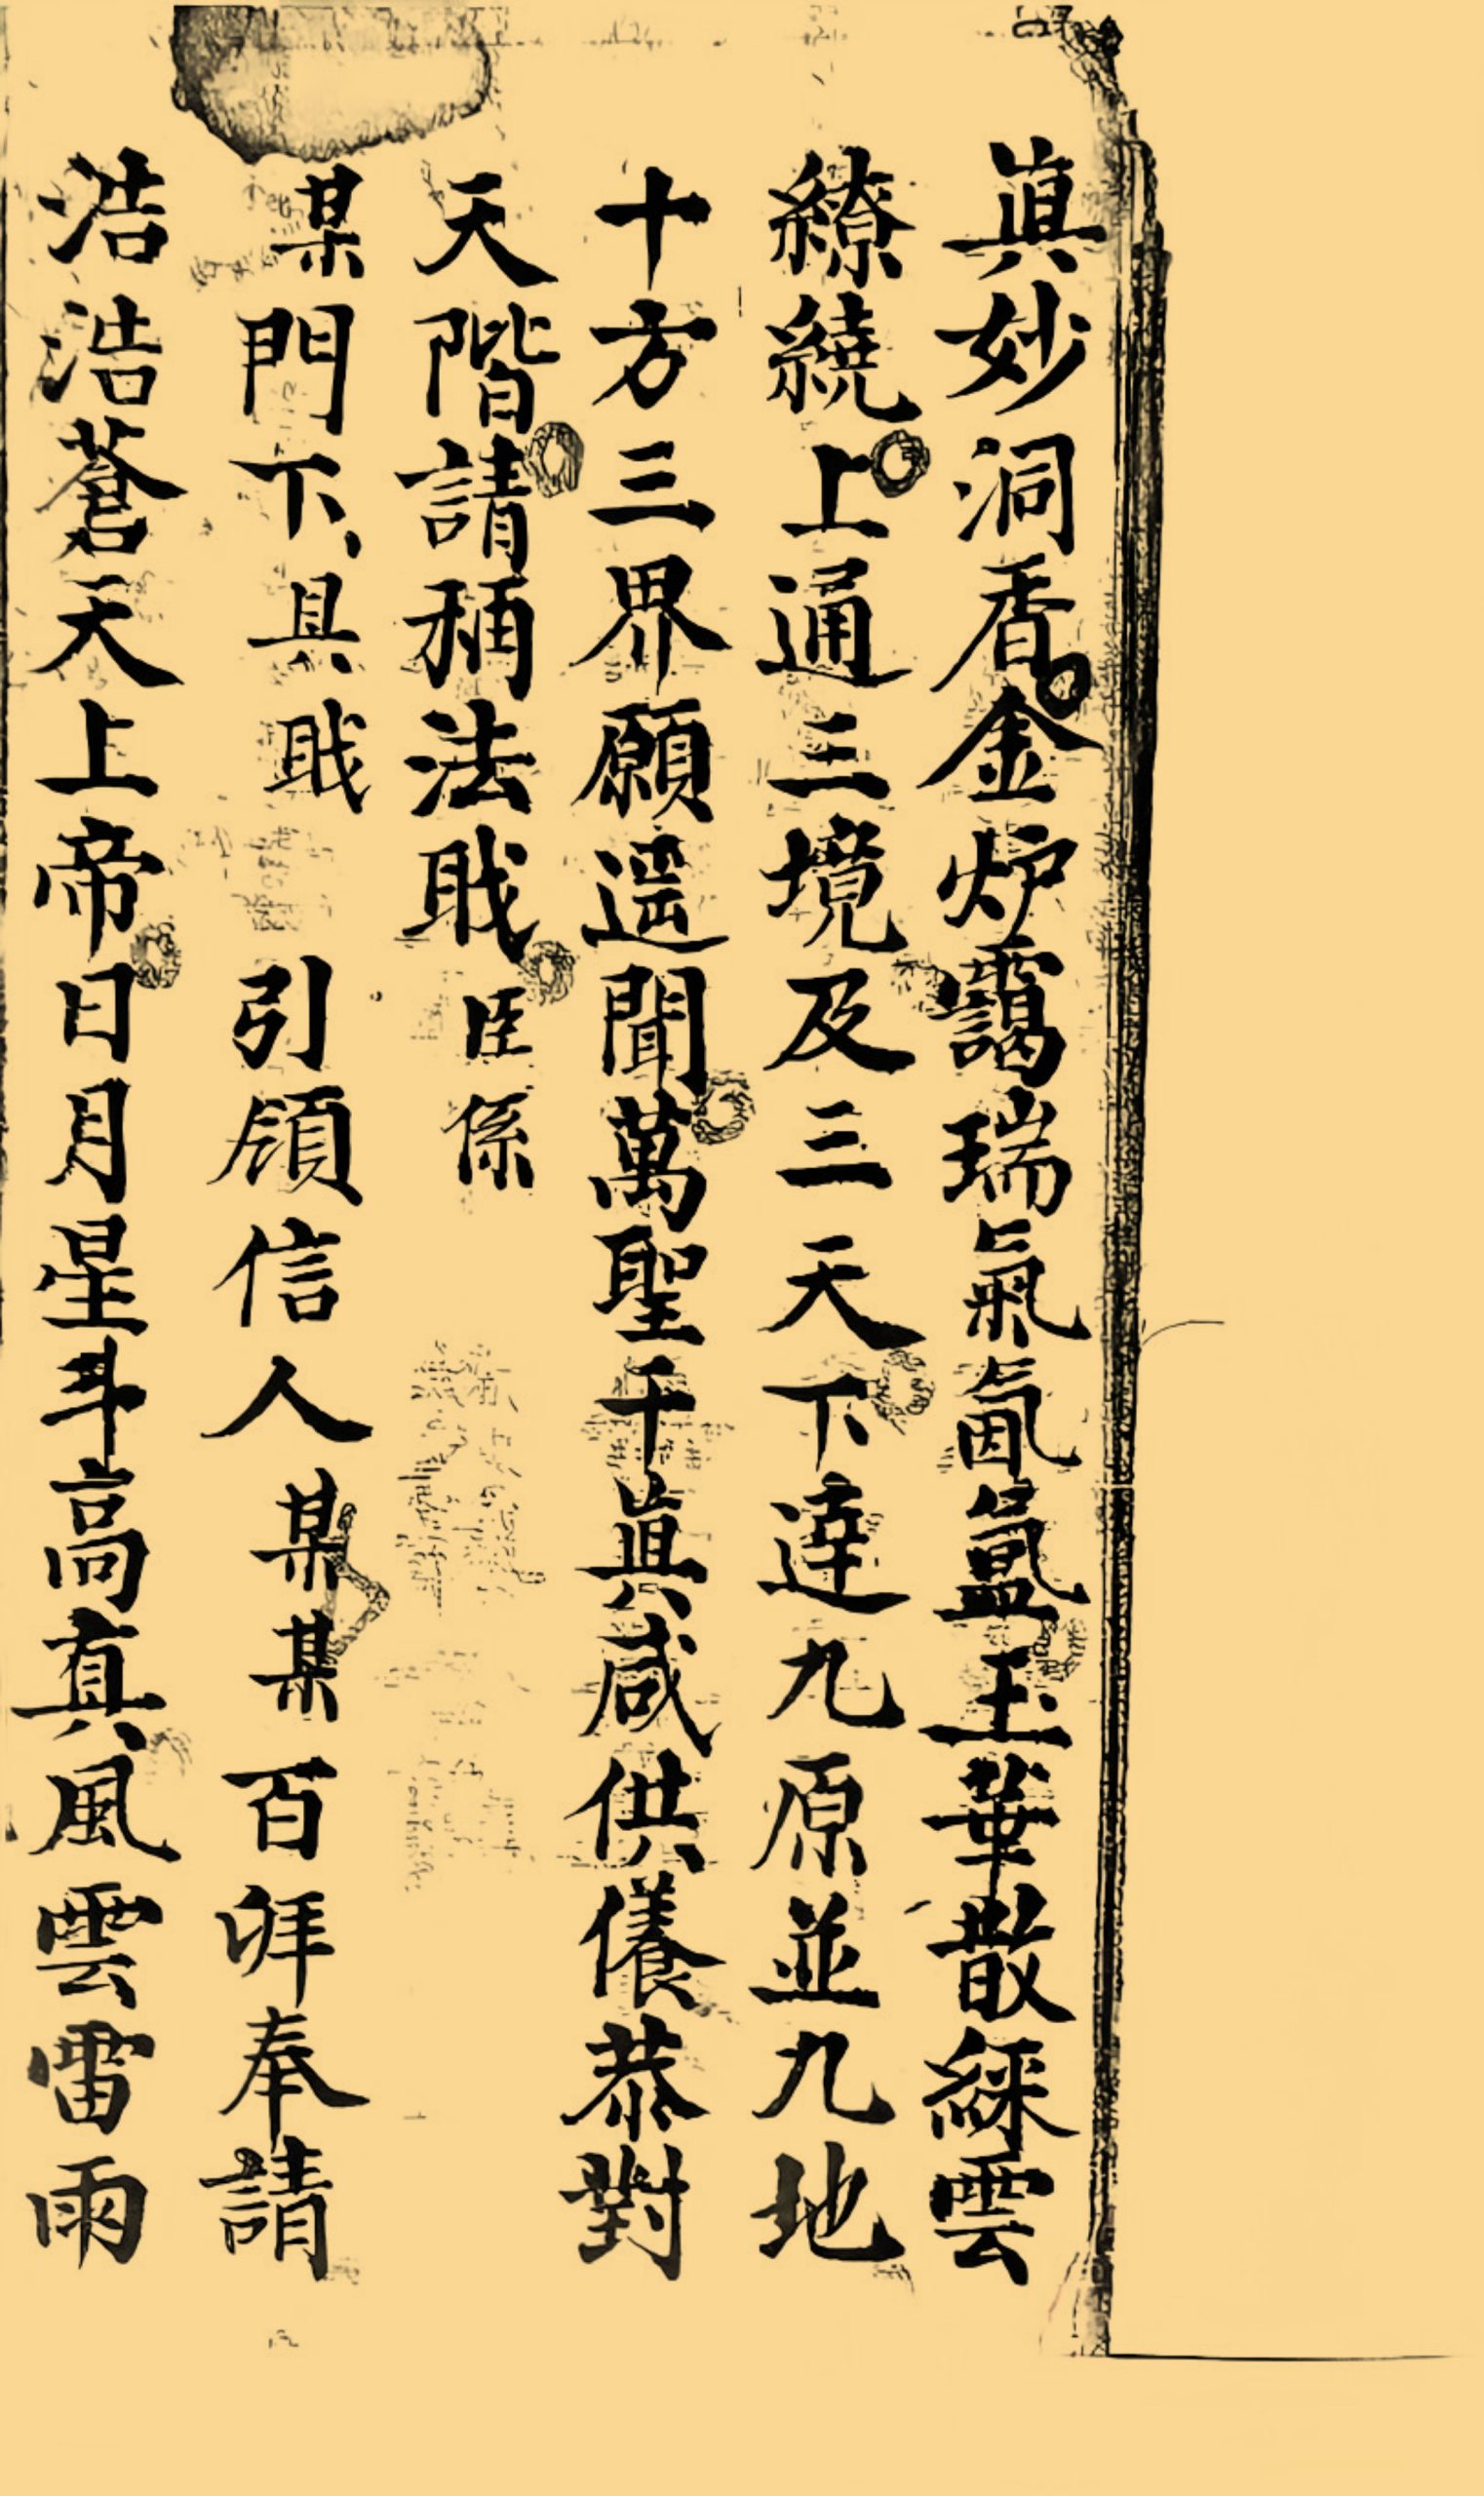 眞妙洞香金炉靄瑞氣氤氳玉華散綵雲
繚繞上通三境及三天下達九原並九地
十方三界願遥聞萬聖千眞咸供養恭對
天階請稱法戝臣係
某門下具戝引領信人某某百拜奉請
浩浩蒼天上帝日月星斗高真風雲雷雨